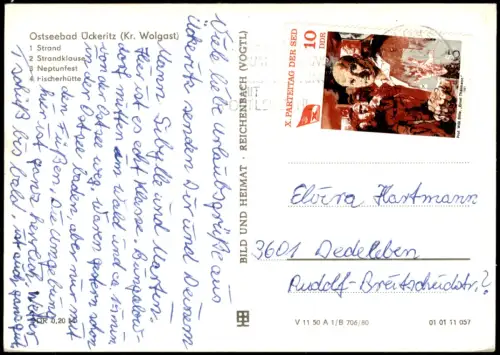 Ostseebad Ückeritz (Kr. Wolgast)
1 Strand
2 Strandklause
3 Neptunfest
4 Fischerhütte
Viele liebe Urlaubsgrüße aus
Ückeritz senden Dir und Deinem
Mann Sibylle und
Hier ist es echt Klasse. Bungalow-
dorf mitten im Wald und ca 15 min
von der Ostsee weg. Waren gestern schon
in der Ostsee baden, aber nur mit
den Füßen. Die Umgebung
hier ist ganz herrlich.
Tschüß bis bald!
0,20
BILD UND HEIMAT · REICHENBACH (VOGTL)
X. PARTEITAG DER SED
10
DDR
Elvira Hartmann
3601 Dedeleben
Rudolf-Breitscheidstr.?
V 11 50 A 1/B 706/80
01 01 11 057